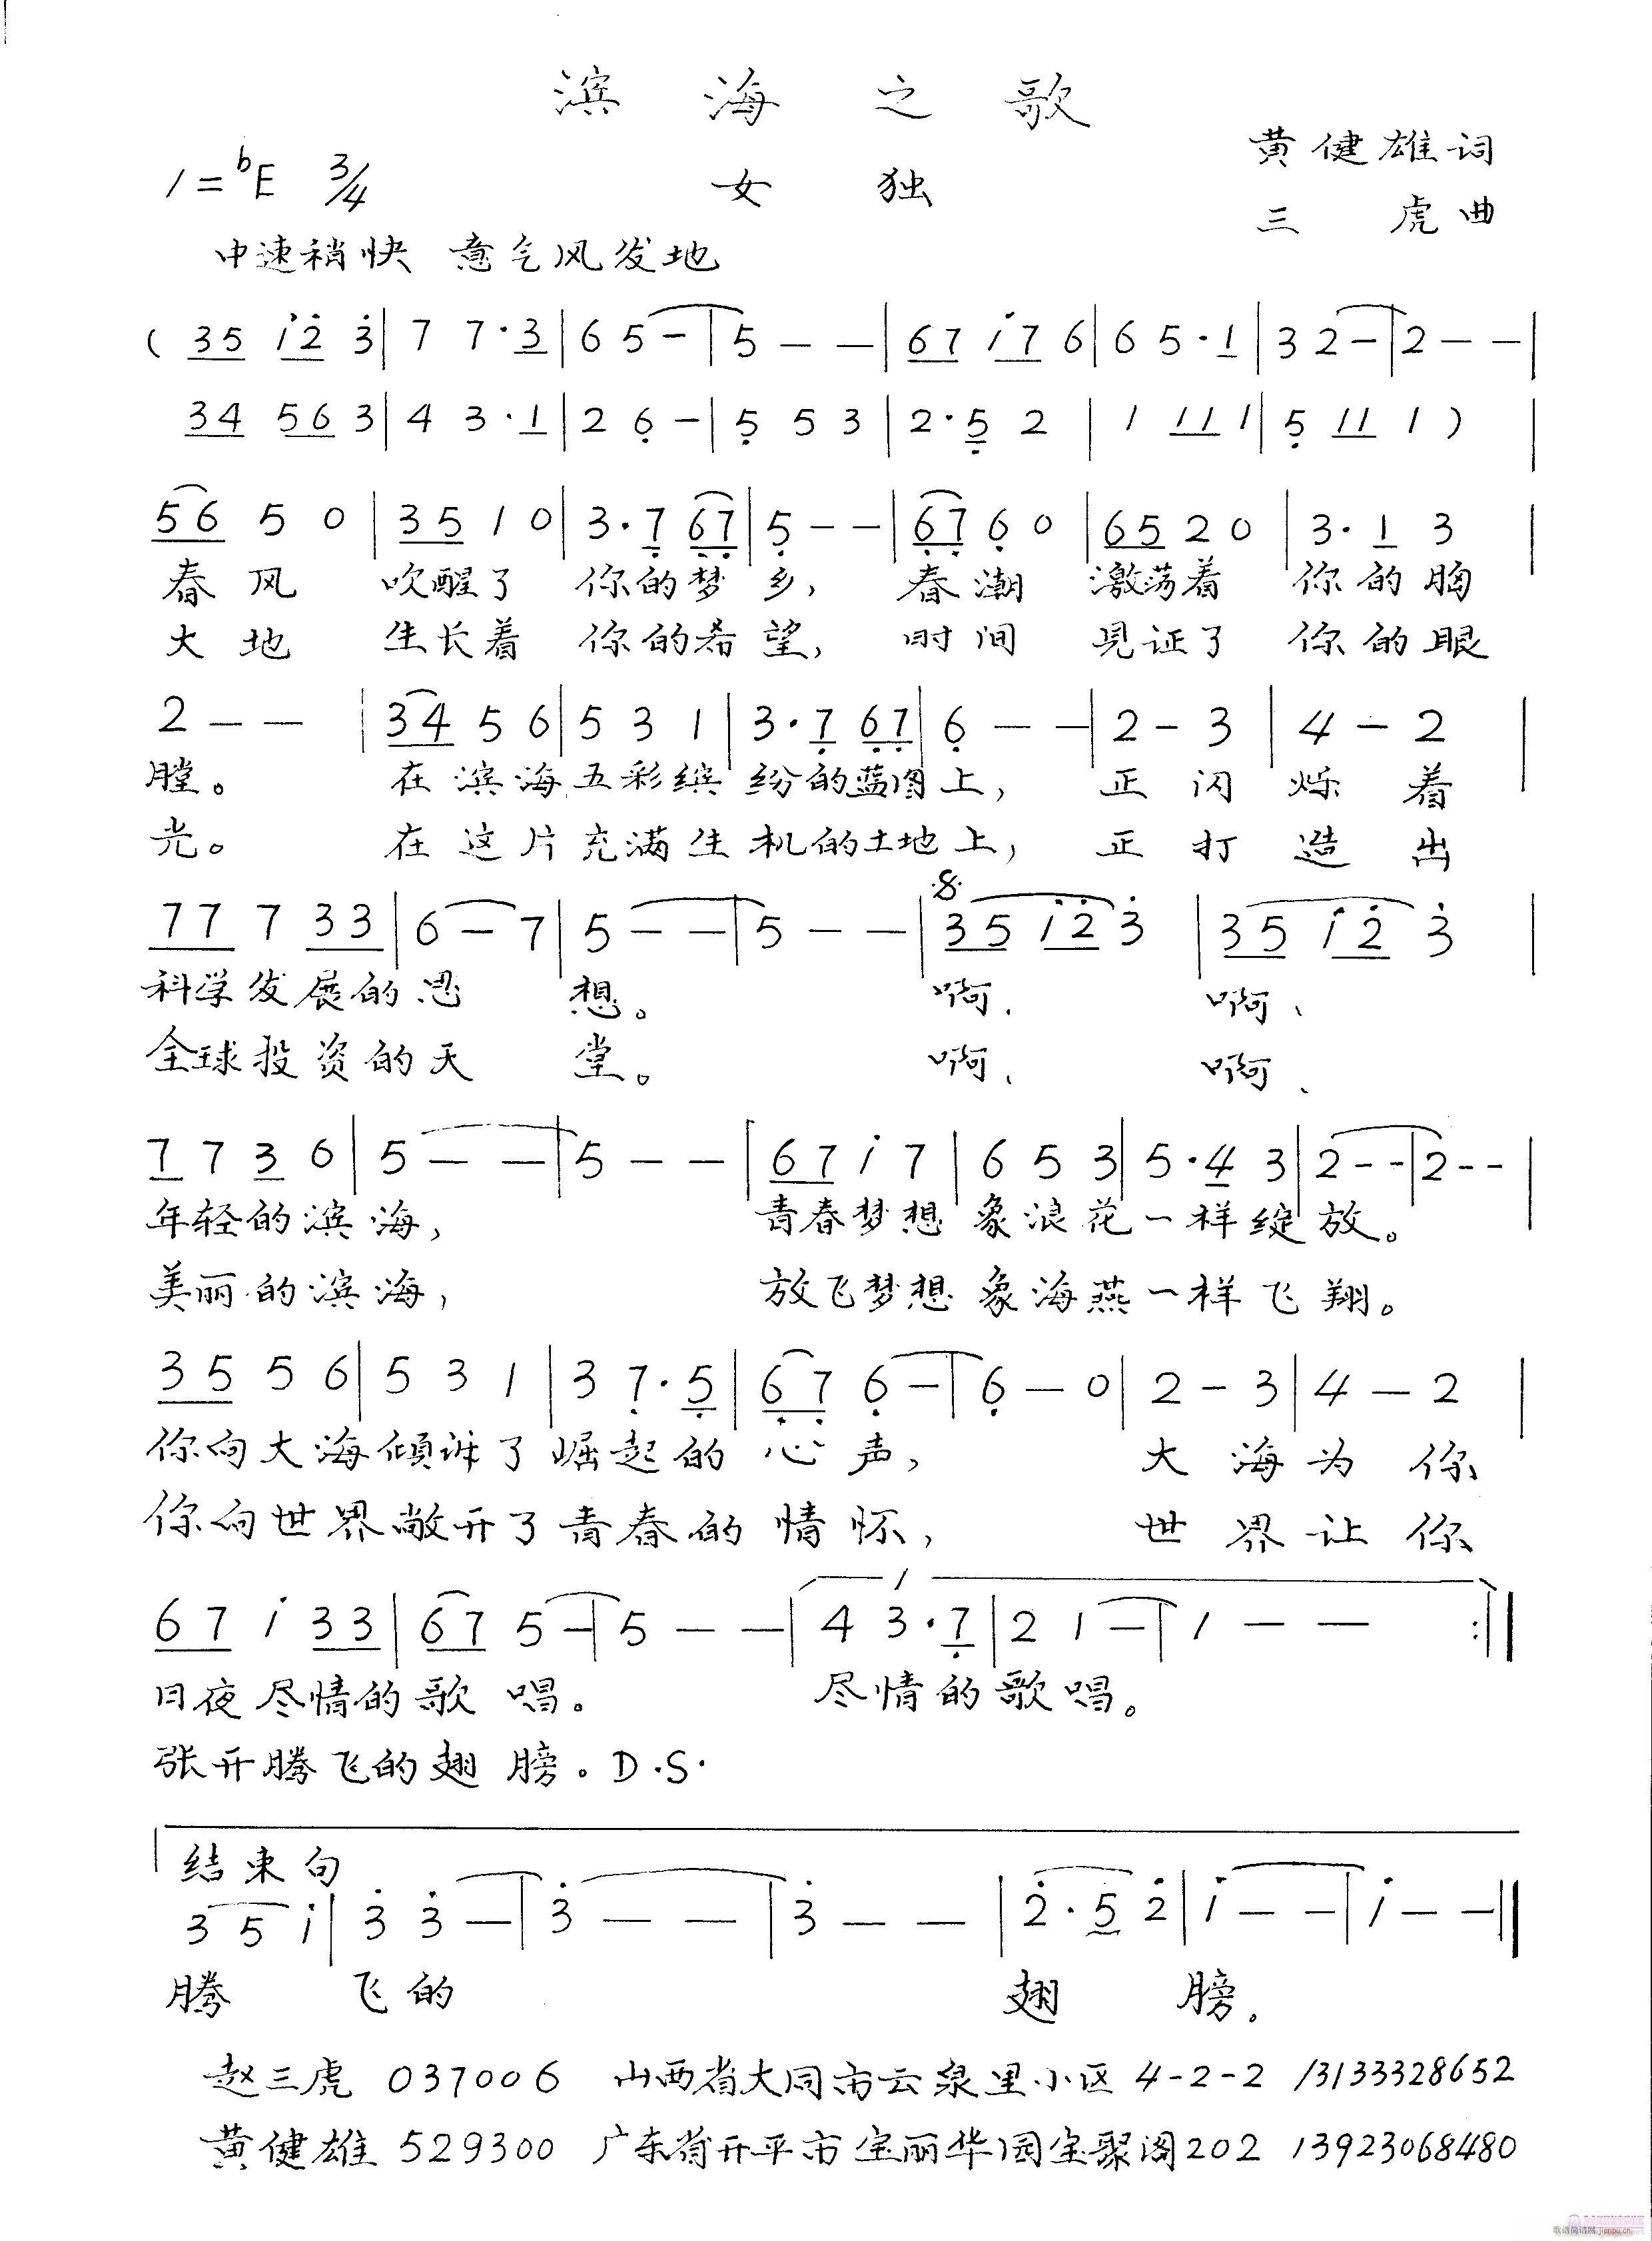 滨海之歌
黄健雄词
1=bE 3/4 女独
三虎曲
中速稍快 意气风发地
( 35 i2 3 | 7 7·3 | 6 5 - | 5 - - | 67 i7 6 | 6 5·1 | 3 2 - | 2 - - |
34 56 3 | 4 3·1 | 2 6 - | 5 5 3 | 2·5 2 | 1 11 1 | 5 11 1 ) |
56 5 0 | 35 1 0 | 3·7 67 | 5 - - | 67 6 0 | 65 2 0 | 3·1 3 |
春风 吹醒了 你的梦乡, 春潮 激荡着 你的胸
大地 生长着 你的希望, 时间 见证了 你的眼
2 - - | 34 5 6 | 5 3 1 | 3·7 67 | 6 - - | 2 - 3 | 4 - 2 |
膛。 在滨海五彩缤纷的蓝图上, 正闪烁着
光。 在这片充满生机的土地上, 正打造出
77 7 33 | 6 - 7 | 5 - - | 5 - - | 35 i2 3 | 35 i2 3 |
科学发展的思想。 啊、 啊、
全球投资的天堂。 啊、 啊、
7 7 3 6 | 5 - - | 5 - - | 67 i 7 | 6 5 3 | 5·4 3 | 2 - - | 2 - - |
年轻的滨海, 青春梦想象浪花一样绽放。
美丽的滨海, 放飞梦想象海燕一样飞翔。
35 5 6 | 5 3 1 | 3 7·5 | 67 6 - | 6 - 0 | 2 - 3 | 4 - 2 |
你向大海倾诉了崛起的心声, 大海为你
你向世界敞开了青春的情怀, 世界让你
1
67 i 33 | 67 5 - | 5 - - | 4 3·7 | 2 1 - | 1 - - :||
日夜尽情的歌唱。 尽情的歌唱。
张开腾飞的翅膀。D.S.
结束句
3 5 i | 3 3 - | 3 - - | 3 - - | 2·5 2 | i - - | i - - ||
腾飞的翅膀。
赵三虎 037006 山西省大同市云泉里小区 4-2-2 13133328652
黄健雄 529300 广东省开平市宝丽华园宝聚阁202 13923068480
歌谱简谱网 jianpu.cn